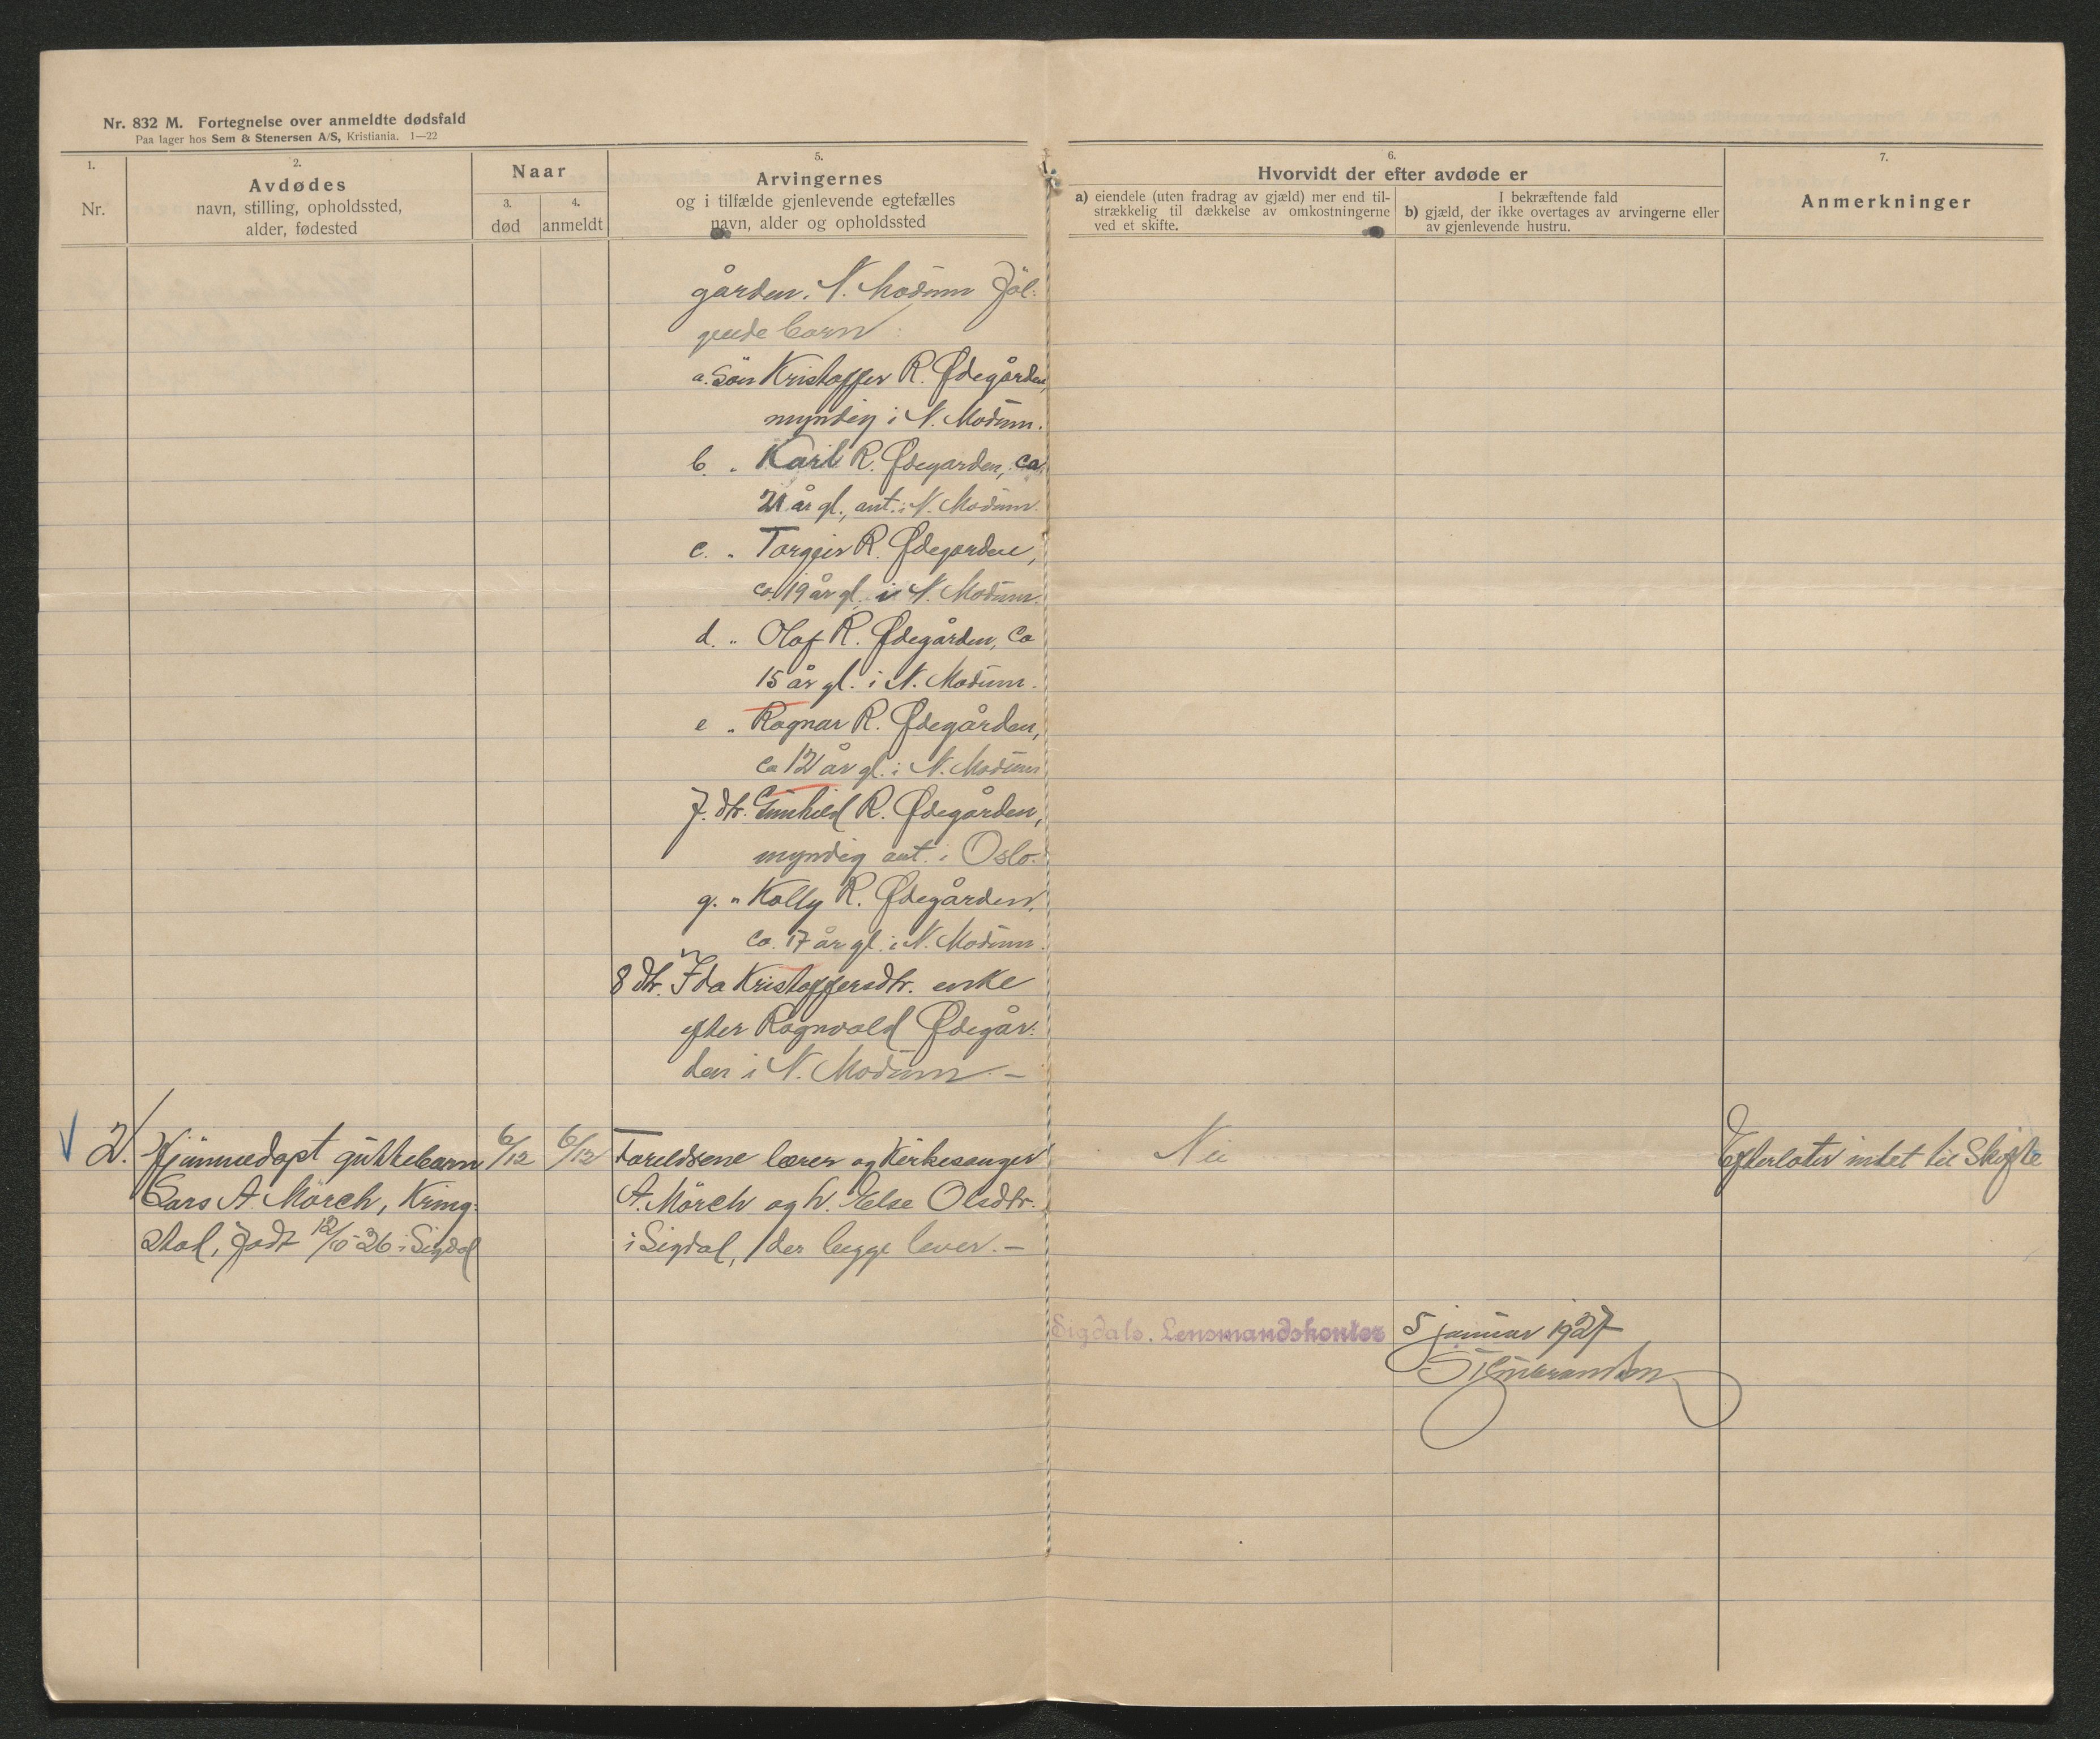 Nr. 832 M. Fortegnelse over anmeldte dødsfald
Paa lager hos Sem & Stenersen A/S, Kristiania. 1—22
1.
Nr.
2.
Avdødes
navn, stilling, opholdssted,
alder, fødested
Naar
3.
død
4.
anmeldt
5.
Arvingernes
og i tilfælde gjenlevende egtefælles
navn, alder og opholdssted
6.
Hvorvidt der efter avdøde er
a) eiendele (uten fradrag av gjæld) mer end til-
strækkelig til dækkelse av omkostningerne
ved et skifte.
I bekræftende fald
b) gjæld, der ikke overtages av arvingerne eller
av gjenlevende hustru.
7.
Anmerkninger
gården. N. Modum Föl-
gende barn:
a. Sön Kristoffer R. Ødegården,
myndig i N. Modum.
b. „ Karl R. Ødegarden, ca.
21 år gl., ant. i N. Modum.
c. „ Torgeir R. Ødegarden,
ca. 19 år gl. i N. Modum.
d. „ Olaf R. Ødegården, ca
15 år gl. i N. Modum.
e „ Ragnar R. Ødegården,
ca 12 år gl. i N. Modum
f. dtr. Gunhild R. Ødegården,
myndig ant. i Oslo.
g. „ Kolly R. Ødegården,
ca. 17 år gl. i N. Modum.
8 dtr. Ida Kristoffersdtr. enke
efter Ragnvald Ødegår-
den i N. Modum. —
2. Hjemmedøpt guttebarn 6/12 6/12 Foreldrene lærer og Kirkesanger Nei Efterlater intet til Skifte
Lars A. Mörch, Kring-
A. Mörch og h. Else Olsdtr.
stad, født 12/10-26 i Sigdal
i Sigdal, der begge lever. —
Sigdals Lensmandskontor 5 januar 1927